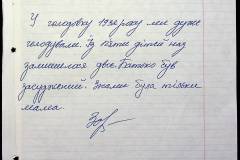 У голодовку 1932 року ми дуже
голодували. Із п'яти дітей нас
залишилося двоє. Батько був
засуджений. Знами була тільки
мама.